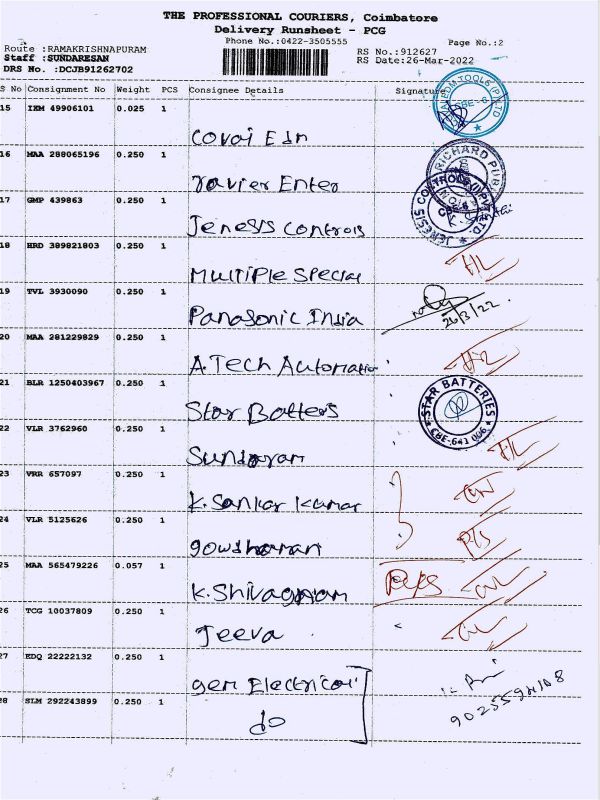 THE PROFESSIONAL COURIERS, Coimbatore
Delivery Runsheet - PCG
Phone No.:0422-3505555
Page No.:2
Route :RAMAKRISHNAPURAM
RS No.:912627
Staff :SUNDARESAN
RS Date:26-Mar-2022
DRS No. :DCJB91262702
S No Consignment No Weight PCS Consignee Details Signature
15 IXM 49906101 0.025 1
Covai Edn
16 MAA 288065196 0.250 1
Xavier Enter
17 GMP 439863 0.250 1
Jenesis Controls
18 HRD 389821803 0.250 1
Multiple Special
19 TVL 3930090 0.250 1
Panasonic India
26/3/22.
20 MAA 281229829 0.250 1
A.Tech Automation
21 BLR 1250403967 0.250 1
Star Batters
STAR BATTERIES
CBE-641 006
22 VLR 3762960 0.250 1
Sundaram
23 VRR 657097 0.250 1
K.Sankar Kumar
24 VLR 5125626 0.250 1
gowdhaman
25 MAA 565479226 0.057 1
K.Shivagnam
26 TCG 10037809 0.250 1
Jeeva
27 EDQ 22222132 0.250 1
gem Electrical
28 SLM 292243899 0.250 1
do